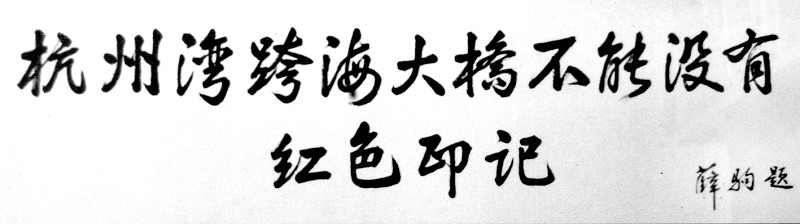 杭州湾跨海大橋不能没有
红色印记
薛驹题